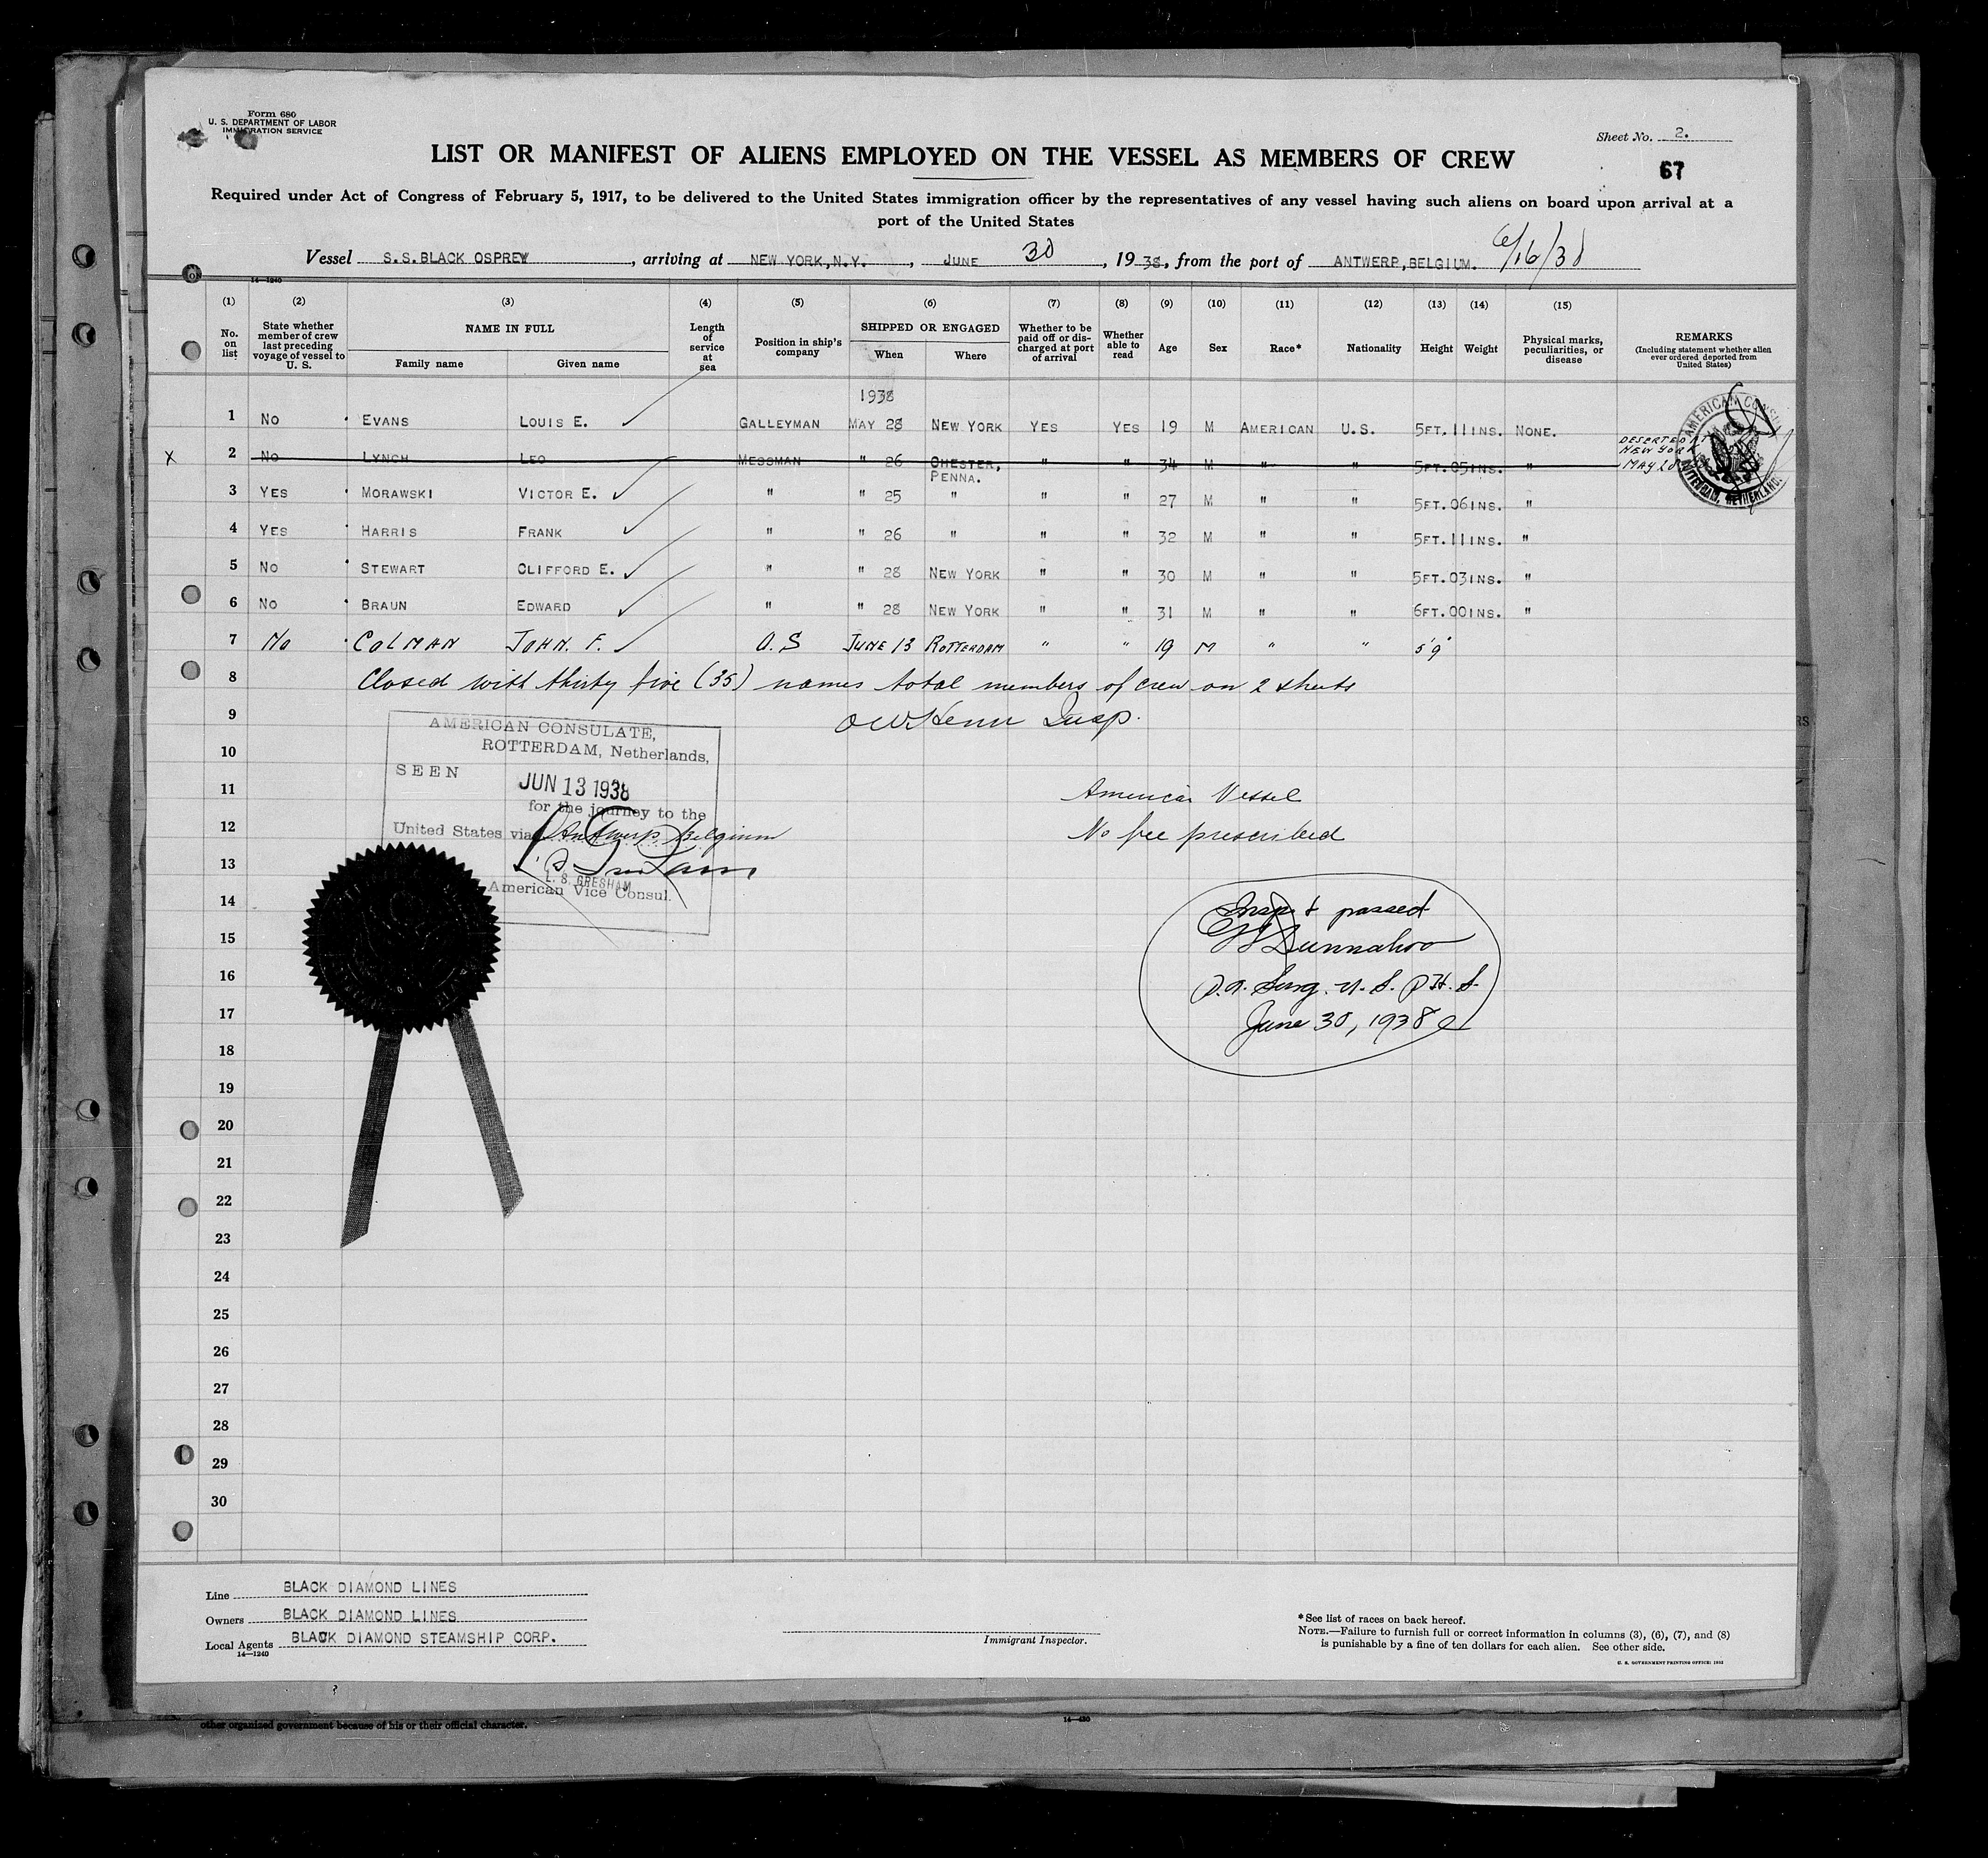 Form 680
U. S. DEPARTMENT OF LABOR
IMMIGRATION SERVICE
Sheet No. 2.
LIST OR MANIFEST OF ALIENS EMPLOYED ON THE VESSEL AS MEMBERS OF CREW
67
Required under Act of Congress of February 5, 1917, to be delivered to the United States immigration officer by the representatives of any vessel having such aliens on board upon arrival at a
port of the United States
Vessel S.S.BLACK OSPREY, arriving at NEW YORK,N.Y., JUNE 30, 1938, from the port of ANTWERP,BELGIUM. 6/16/38
14—1240
(1) (2) (3) (4) (5) (6) (7) (8) (9) (10) (11) (12) (13) (14) (15)
No. on list
State whether member of crew last preceding voyage of vessel to U. S.
NAME IN FULL
Family name
Given name
Length of service at sea
Position in ship's company
SHIPPED OR ENGAGED
When
Where
Whether to be paid off or discharged at port of arrival
Whether able to read
Age
Sex
Race*
Nationality
Height
Weight
Physical marks, peculiarities, or disease
REMARKS
(Including statement whether alien ever ordered deported from United States)
1938
1 NO EVANS LOUIS E. GALLEYMAN MAY 28 NEW YORK YES YES 19 M AMERICAN U.S. 5FT.11INS. NONE.
X 2 NO LYNCH LEO MESSMAN " 26 CHESTER, PENNA. " " 34 M " " 5FT.05INS. " DESERTED AT NEW YORK MAY 28
3 YES MORAWSKI VICTOR E. " " 25 " " " 27 M " " 5FT.06INS. "
4 YES HARRIS FRANK " " 26 " " " 32 M " " 5FT.11INS. "
5 NO STEWART CLIFFORD E. " " 28 NEW YORK " " 30 M " " 5FT.03INS. "
6 NO BRAUN EDWARD " " 28 NEW YORK " " 31 M " " 6FT.00INS. "
7 NO COLMAN JOHN. F. O.S JUNE 13 ROTTERDAM " " 19 M " " 5'9"
8 Closed with thirty five (35) names total members of crew on 2 sheets
9 Insp.
AMERICAN CONSULATE,
ROTTERDAM, Netherlands,
SEEN
JUN 13 1938
for the journey to the
United States via Antwerp Belgium
L. S. GRESHAM
American Vice Consul.
10
11 American Vessel
12 No fee prescribed
13
14 Insp & passed
15 Dunnahoo
16 P.A. Surg. U.S.P.H.S.
17 June 30, 1938
18
19
20
21
22
23
24
25
26
27
28
29
30
Line BLACK DIAMOND LINES
Owners BLACK DIAMOND LINES
Local Agents BLACK DIAMOND STEAMSHIP CORP.
14—1240
Immigrant Inspector.
*See list of races on back hereof.
NOTE.—Failure to furnish full or correct information in columns (3), (6), (7), and (8)
is punishable by a fine of ten dollars for each alien. See other side.
U. S. GOVERNMENT PRINTING OFFICE: 1932
other organized government because of his or their official character.